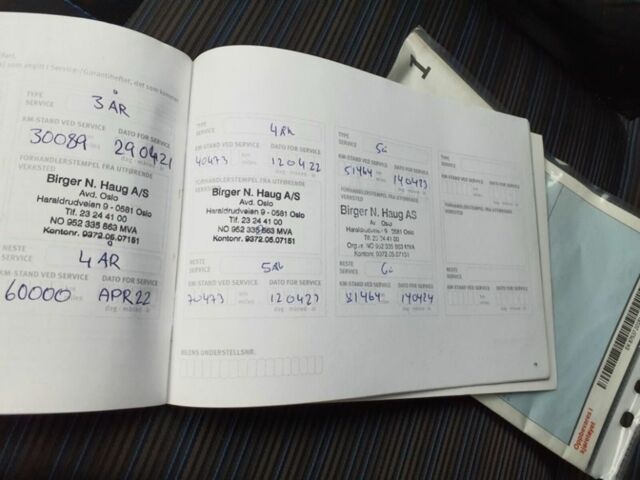 som angitt i Service-/Garantiheftet, det som kommer
TYPE
SERVICE
3 ÅR
KM-STAND VED SERVICE
DATO FOR SERVICE
30089
290421
FORHANDLERSTEMPEL FRA UTFØRENDE
VERKSTED
Birger N. Haug A/S
Avd. Oslo
Haraldrudveien 9 - 0581 Oslo
Tlf. 23 24 41 00
NO 952 335 663 MVA
Kontonr. 9372.05.07151
NESTE
SERVICE
4 ÅR
KM-STAND VED SERVICE
DATO FOR SERVICE
60000
APR 22
dag - måned - år
TYPE
SERVICE
4 ÅR
KM-STAND VED SERVICE
DATO FOR SERVICE
40473
120422
dag - måned - år
FORHANDLERSTEMPEL FRA UTFØRENDE
VERKSTED
Birger N. Haug A/S
Avd. Oslo
Haraldrudveien 9 - 0581 Oslo
Tlf. 23 24 41 00
NO 952 335 663 MVA
Kontonr. 9372.05.07151
NESTE
SERVICE
5 ÅR
KM-STAND VED SERVICE
DATO FOR SERVICE
70473
120423
dag - måned - år
BILENS UNDERSTELLSNR.
TYPE
SERVICE
KM-STAND VED SERVICE
DATO FOR SERVICE
51464
140423
FORHANDLERSTEMPEL FRA UTFØRENDE
VERKSTED
Birger N. Haug AS
Av. Oslo
Haraldrudveien 9 - 0581 Oslo
Tlf. 23 24 41 00
NO 952 335 663 MVA
NESTE
SERVICE
KM-STAND VED SERVICE
DATO FOR SERVICE
81464
140424
dag - måned - år
TYPE
SERVICE
KM-STAND VED SERVICE
DATO FOR SERVICE
FORHANDLERSTEMPEL FRA UTFØRENDE
VERKSTED
NESTE
SERVICE
KM-STAND VED SERVICE
DATO FOR SERVICE
1
Oppbevares i
kjøretøyet